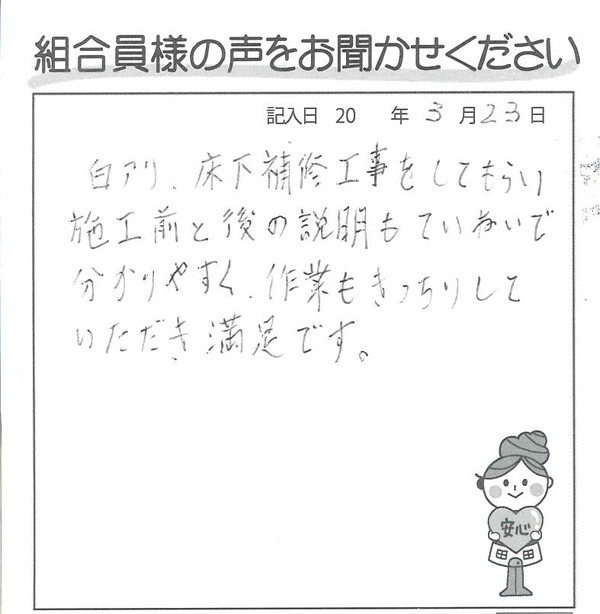 組合員様の声をお聞かせください
記入日 20 年 3月23日
白アリ、床下補修工事をしてもらい
施工前と後の説明もていねいで
分かりやすく、作業もきっちりして
いただき満足です。
安心